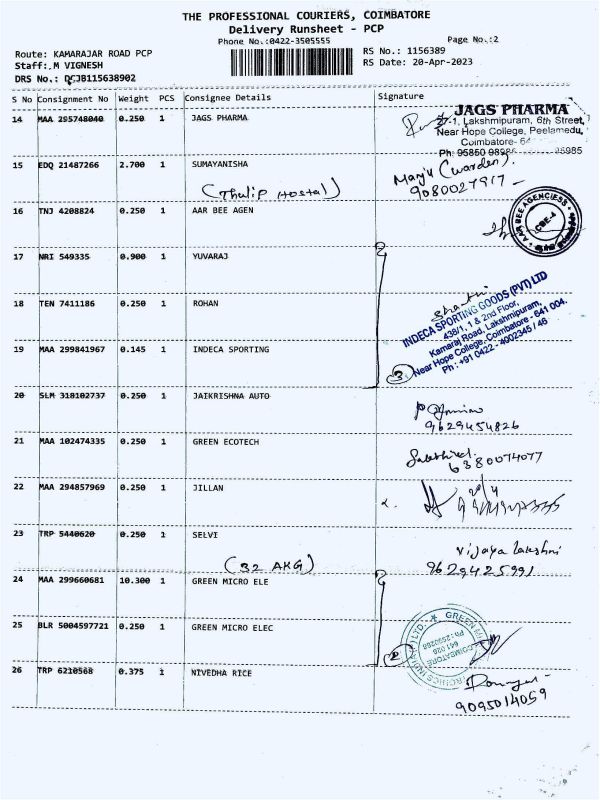 THE PROFESSIONAL COURIERS, COIMBATORE
Delivery Runsheet - PCP
Phone No.:0422-3505555
Page No.:2
Route: KAMARAJAR ROAD PCP
RS No.: 1156389
Staff:.M VIGNESH
RS Date: 20-Apr-2023
DRS No.: DCJB115638902
S No Consignment No Weight PCS Consignee Details Signature
14 MAA 295748040 0.250 1 JAGS PHARMA
JAGS PHARMA
27-1, Lakshmipuram, 6th Street,
Near Hope College, Peelamedu,
Coimbatore- 64
Ph: 95850 98985
15 EDQ 21487266 2.700 1 SUMAYANISHA
(Thulip Hostal)
Manju (warden).
9080027917
16 TNJ 4208824 0.250 1 AAR BEE AGEN
AAR BEE AGENCIESS
CBE-4
17 NRI 549335 0.900 1 YUVARAJ
18 TEN 7411186 0.250 1 ROHAN
INDECA SPORTING GOODS (PVT) LTD
438/1, 1 & 2nd Floor,
Kamaraj Road, Lakshmipuram,
Near Hope College, Coimbatore - 641 004.
Ph : +91 0422 - 4002345 / 46
19 MAA 299841967 0.145 1 INDECA SPORTING
3
20 SLM 318102737 0.250 1 JAIKRISHNA AUTO
9629454826
21 MAA 102474335 0.250 1 GREEN ECOTECH
6380074077
22 MAA 294857969 0.250 1 JILLAN
23 TRP 5440620 0.250 1 SELVI
(32 AKG)
Vijaya lakshmi
9629425991
24 MAA 299660681 10.300 1 GREEN MICRO ELE
25 BLR 5004597721 0.250 1 GREEN MICRO ELEC
2
COIMBATORE
641 028
26 TRP 6210568 0.375 1 NIVEDHA RICE
9095014059